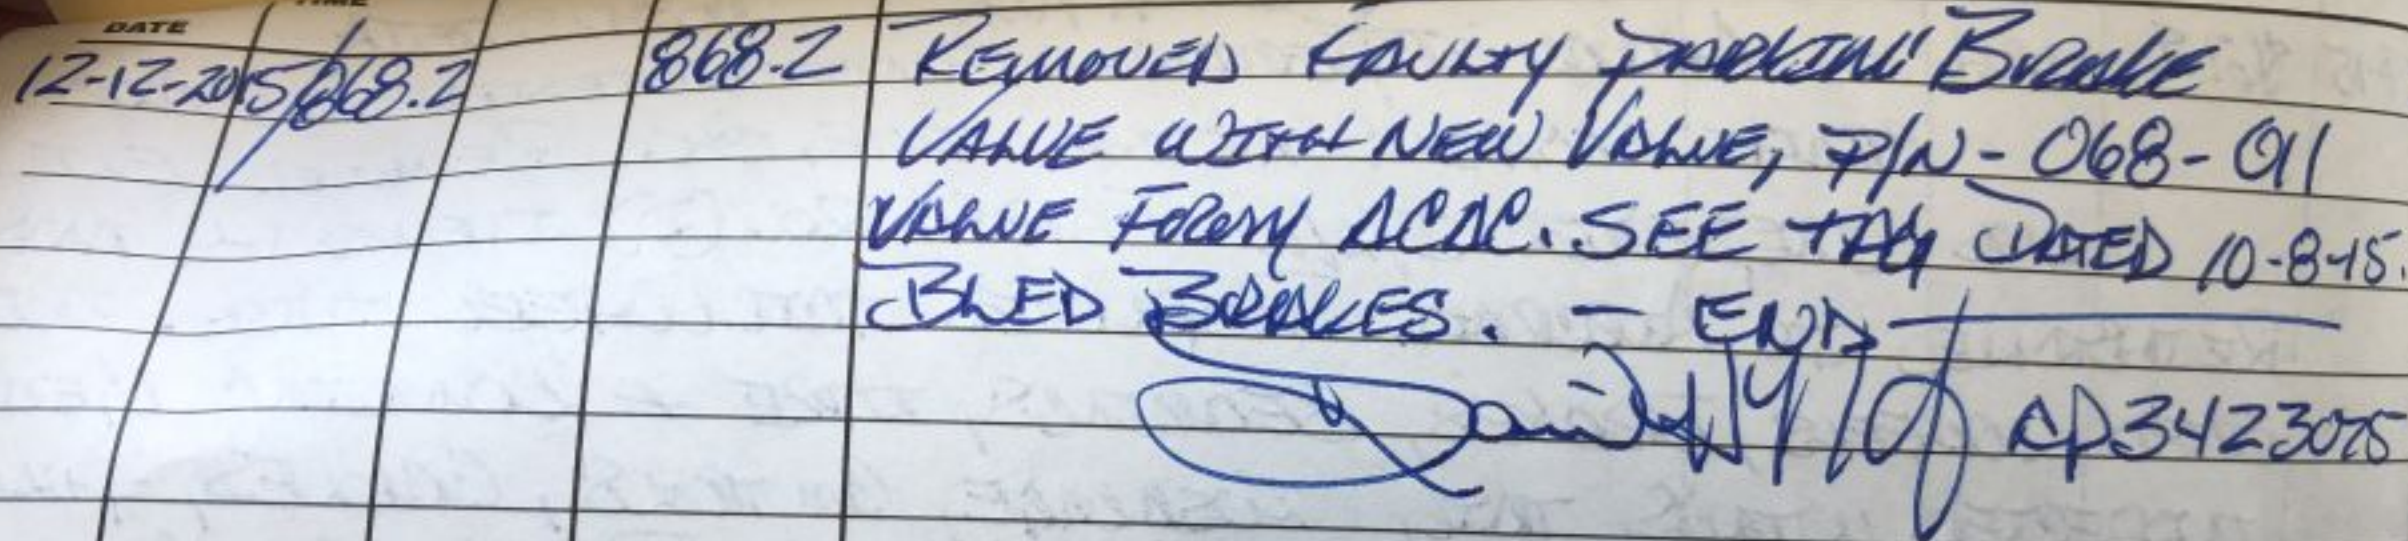 DATE TIME
12-12-2015 868.2 868.2 REMOVED FAULTY PARKING BRAKE
VALVE WITH NEW VALVE, P/N-068-011
VALVE FROM ACAC. SEE TAG DATED 10-8-15.
BLED BRAKES. - END
David AP3423075